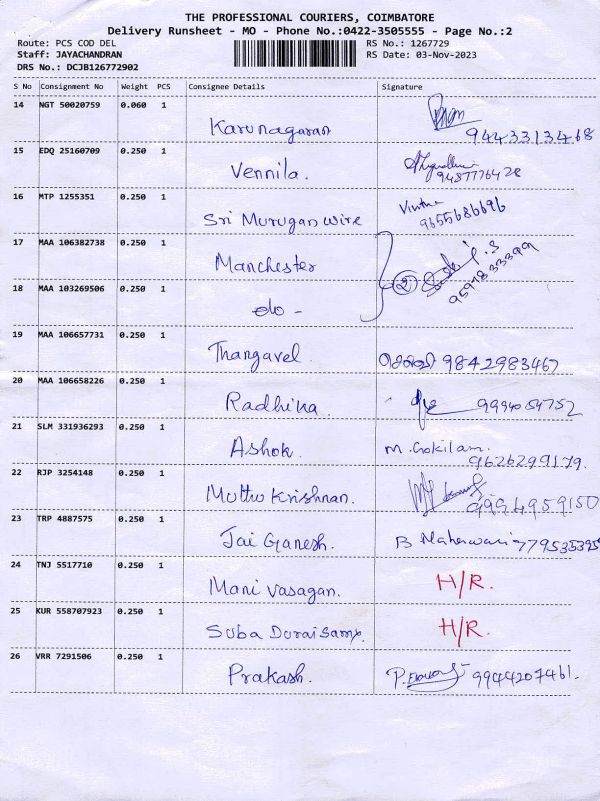 THE PROFESSIONAL COURIERS, COIMBATORE
Delivery Runsheet - MO - Phone No.:0422-3505555 - Page No.:2
Route: PCS COD DEL RS No.: 1267729
Staff: JAYACHANDRAN RS Date: 03-Nov-2023
DRS No.: DCJB126772902
S No Consignment No Weight PCS Consignee Details Signature
14 NGT 50020759 0.060 1 Karunagaran 9443313468
15 EDQ 25160709 0.250 1 Vennila. 9487776428
16 MTP 1255351 0.250 1 Sri Murugan Wire 9655686696
17 MAA 106382738 0.250 1 Manchester 2
18 MAA 103269506 0.250 1 do - 9597833399
19 MAA 106657731 0.250 1 Thangavel. 9842983467
20 MAA 106658226 0.250 1 Radhika 9994054752
21 SLM 331936293 0.250 1 Ashok. M. Gokilam. 9626299179.
22 RJP 3254148 0.250 1 Muthu Krishnan. 9994959150
23 TRP 4887575 0.250 1 Jai Ganesh. B Maheswari - 779535395
24 TNJ 5517710 0.250 1 Mani Vasagan. H/R.
25 KUR 558707923 0.250 1 Suba Duraisamy. H/R.
26 VRR 7291506 0.250 1 Prakash. 9944207461.